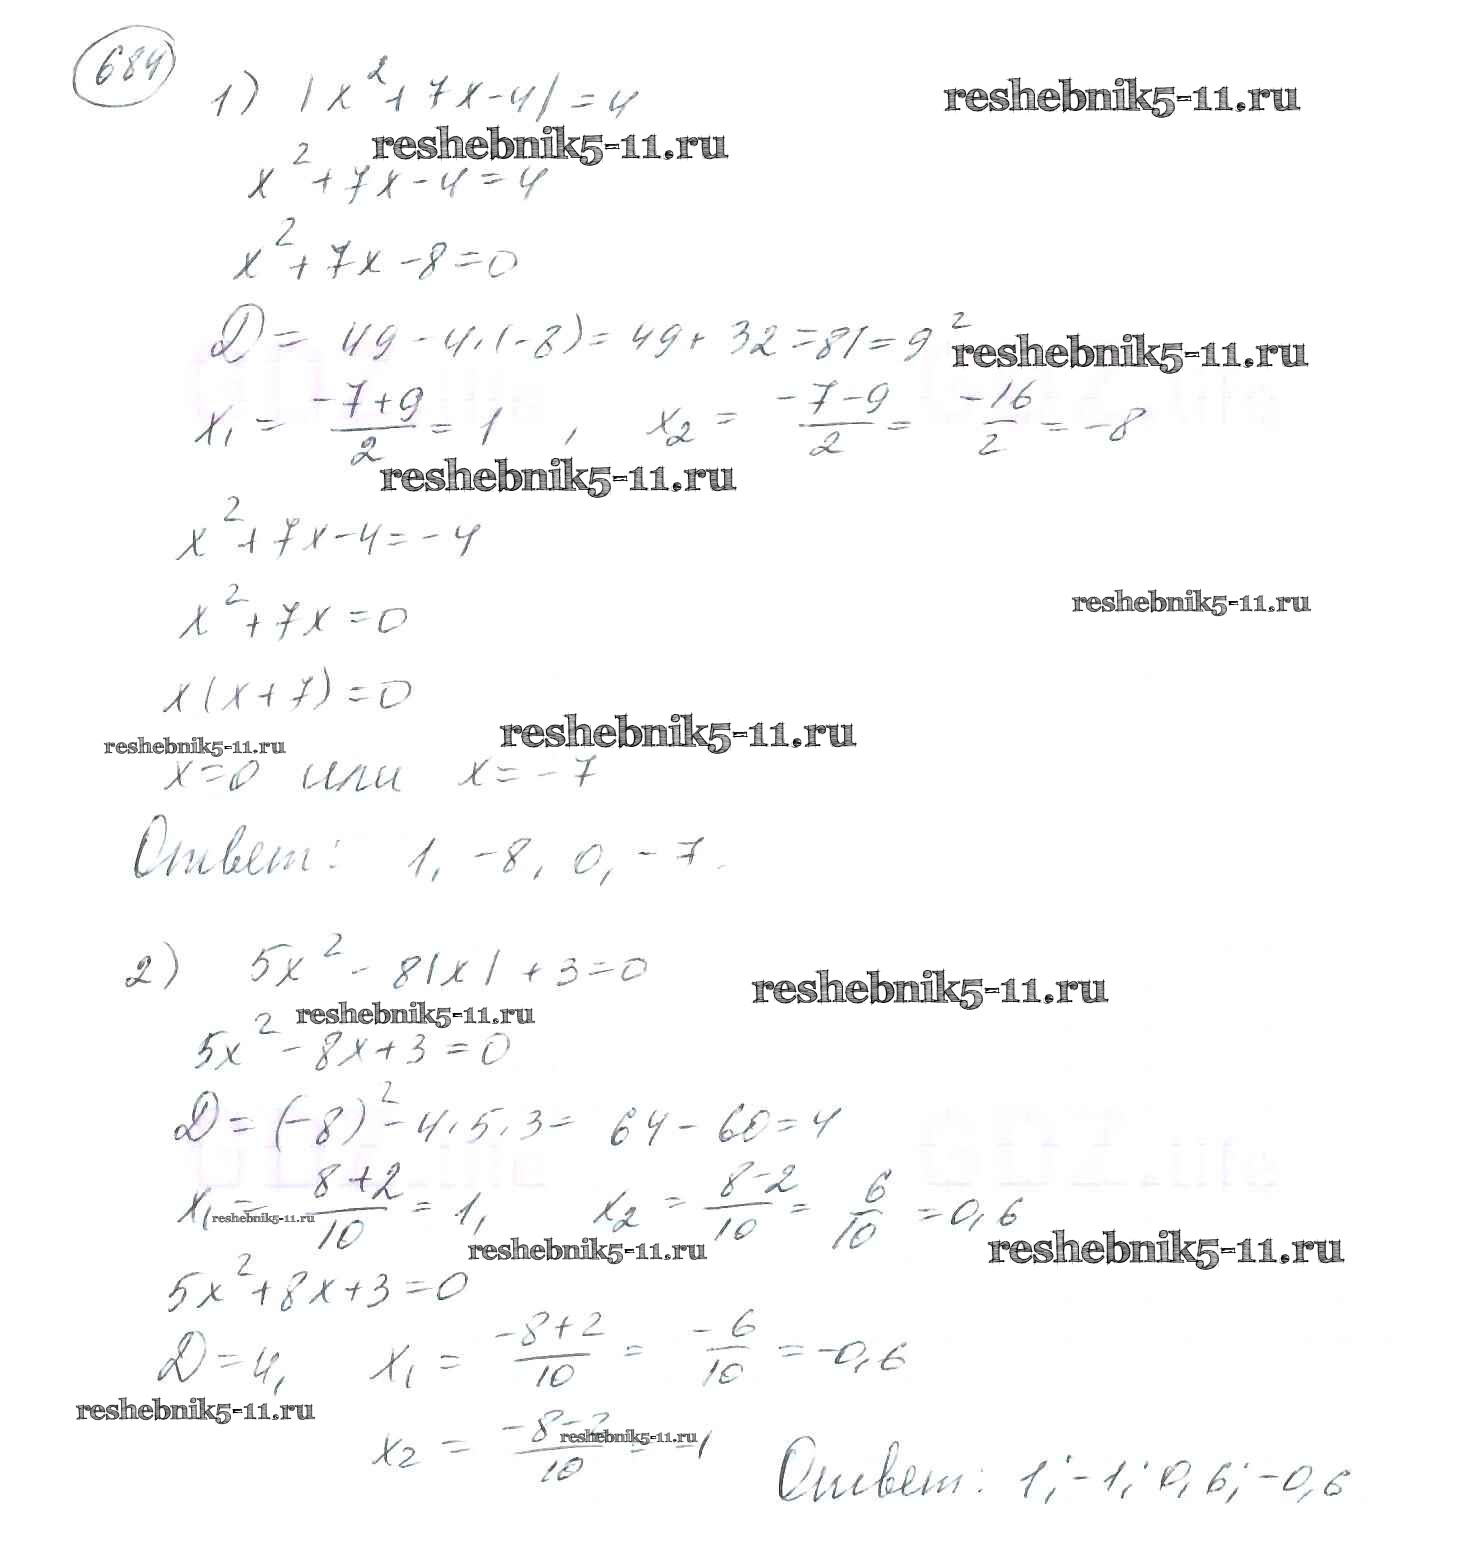 684
1) |x²+7x-4|=4
reshebnik5-11.ru
reshebnik5-11.ru
x²+7x-4=4
x²+7x-8=0
D= 49-4·(-8)=49+32=81=9²
reshebnik5-11.ru
x₁= (-7+9)/2 =1 , x₂= (-7-9)/2 = -16/2 =-8
reshebnik5-11.ru
x²+7x-4=-4
x²+7x=0
reshebnik5-11.ru
x(x+7)=0
reshebnik5-11.ru
reshebnik5-11.ru
x=0 или x=-7
Ответ: 1, -8, 0, -7.
2) 5x²-8|x|+3=0
reshebnik5-11.ru
reshebnik5-11.ru
5x²-8x+3=0
D=(-8)²-4·5·3= 64-60=4
x₁= (8+2)/10 =1, x₂= (8-2)/10 = 6/10 =0,6
reshebnik5-11.ru
reshebnik5-11.ru
reshebnik5-11.ru
5x²+8x+3=0
D=4, x₁= (-8+2)/10 = -6/10 =-0,6
reshebnik5-11.ru
x₂= (-8-2)/10 = -1
reshebnik5-11.ru
Ответ: 1; -1; 0,6; -0,6